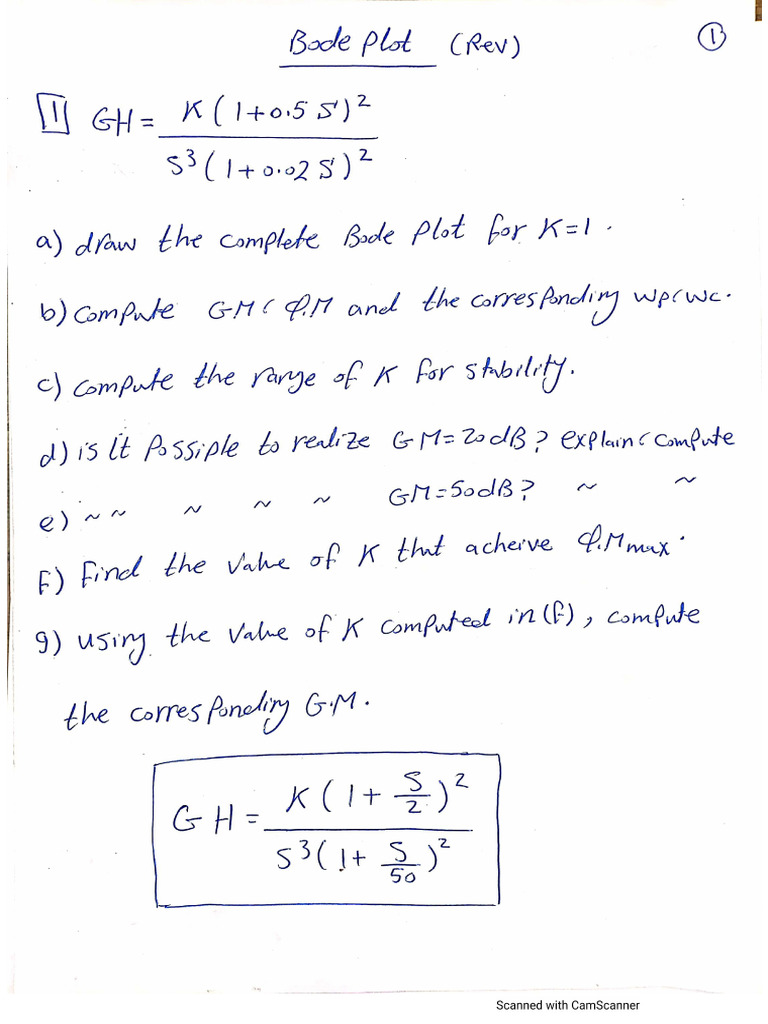 Bode Plot (Rev) ①
1 GH = K(1+0.5 S)² / S³(1+0.02 S)²
a) draw the complete Bode Plot for K=1.
b) compute GM ‹ φ.M and the corresponding wp ‹ wc.
c) compute the range of K for stability.
d) is it Possiple to realize GM=20dB? explain ‹ compute
e) ~ ~ ~ ~ ~ GM=50dB? ~ ~
F) Find the value of K that acheive φ.Mmax.
g) using the value of K computed in (f), compute
the corresponding G.M.
GH = K(1+ S/2)² / S³(1+ S/50)²
Scanned with CamScanner